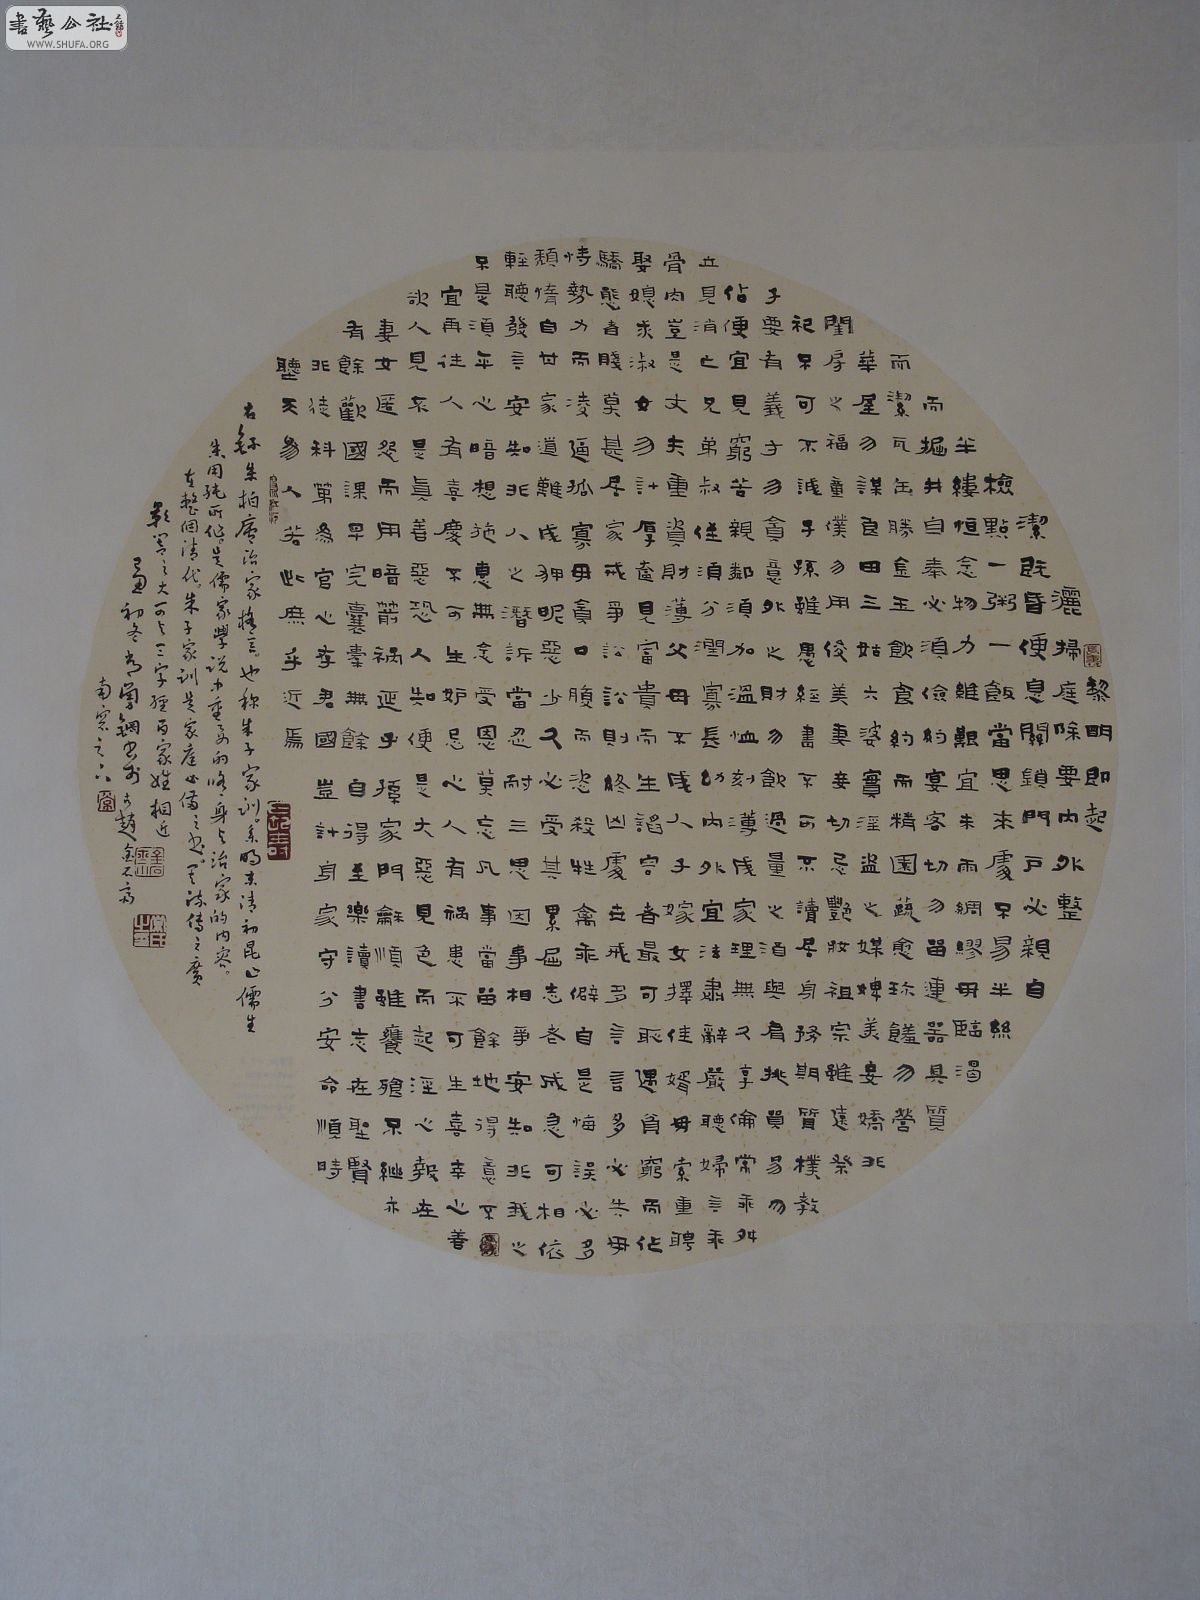 書藝公社
WWW.SHUFA.ORG
黎明即起
灑掃庭除要內外整
潔既昏便息關鎖門戶必親自
檢點一粥一飯當思來處不易半絲
半縷恒念物力維艱宜未雨綢繆毋臨渴
而掘井自奉必須儉約宴客切勿留連器具質
而潔瓦缶勝金玉飲食約而精園蔬愈珍饈勿營
華屋勿謀良田三姑六婆實淫盜之媒婢美妾嬌非
閨房之福童僕勿用俊美妻妾切忌艷妝祖宗雖遠祭
祀不可不誠子孫雖愚經書不可不讀居身務期質樸教
子要有義方勿貪意外之財勿飲過量之酒與肩挑貿易勿
佔便宜見窮苦親鄰須加溫恤刻薄成家理無久享倫常乖舛
立見消亡兄弟叔侄須分潤寡長幼內外宜法肅辭嚴聽婦言乖
骨肉豈是丈夫重資財薄父母不成人子嫁女擇佳婿毋索重聘
娶媳求淑女勿計厚奩見富貴而生諂容者最可恥遇貧窮而作
驕態者賤莫甚居家戒爭訟訟則終凶處世戒多言言多必失毋
恃勢力而凌逼孤寡毋貪口腹而恣殺牲禽乖僻自是悔誤必多
頹惰自甘家道難成狎昵惡少久必受其累屈志老成急可相依
輕聽發言安知非人之潛訴當忍耐三思因事相爭安知非我之
不是須平心暗想施惠無念受恩莫忘凡事當留餘地得意不
宜再往人有喜慶不可生妒忌心人有禍患不可生喜幸心善
欲人見不是真善惡恐人知便是大惡見色而起淫心報在
妻女匿怨而用暗箭禍延子孫家門和順雖饔飧不繼亦
有餘歡國課早完囊橐無餘自得至樂讀書志在聖賢
非徒科第為官心存君國豈計身家守分安命順時
聽天為人若此庶乎近焉
右錄朱柏廬治家格言。也称朱子家訓。系明末清初昆山儒生
朱用純所作。是儒家學说中重要的修身与治家的內容。
在整個清代。朱子家訓是家庭必備之也。其流傳之廣
影響之大可与三字經百家姓相近
初冬
南窓之下